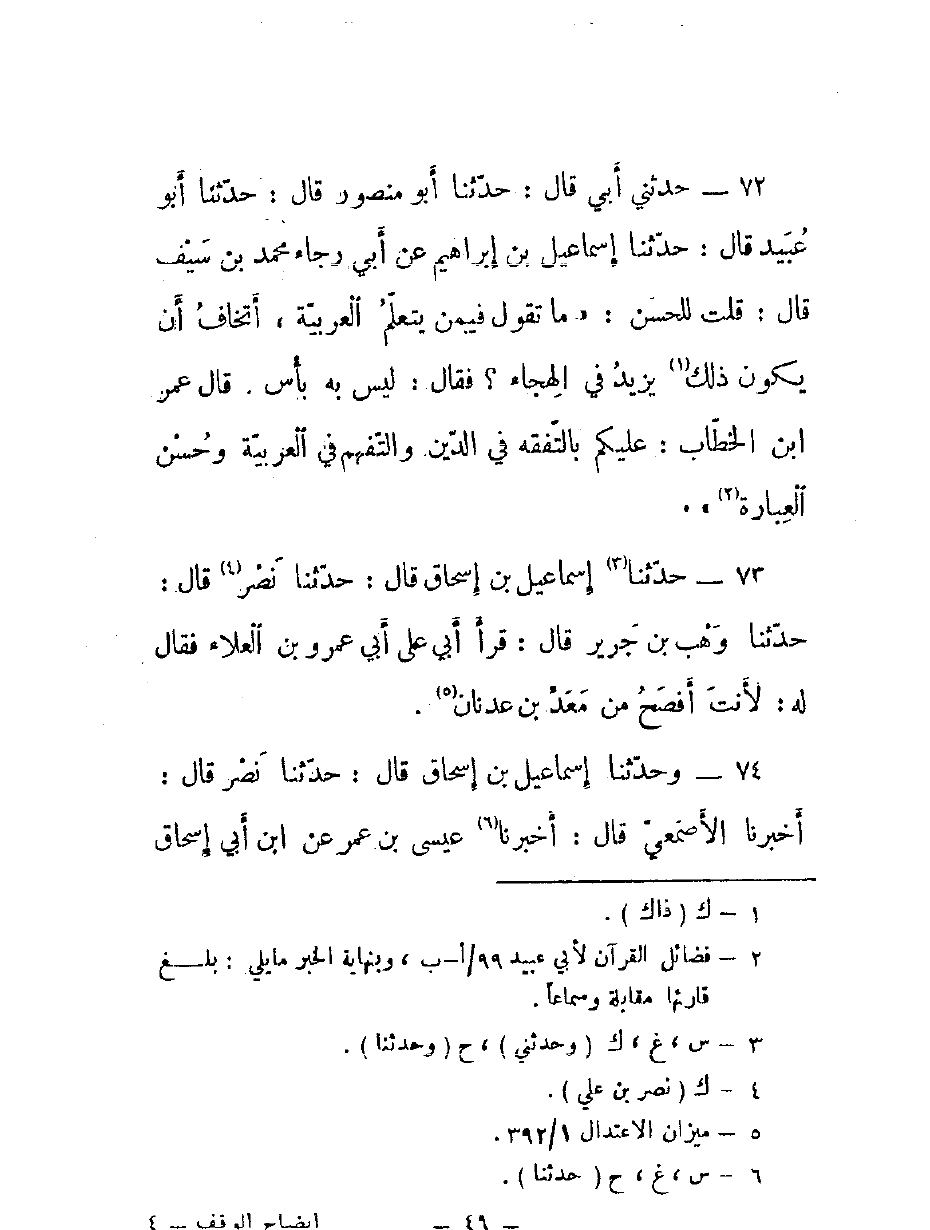 ٧٢ – حدثني أَبي قال : حدّثنا أَبو منصور قال : حدّثنا أَبو
عُبَيد قال : حدّثنا إِسماعيل بن إِبراهيم عن أَبي رجاء محمد بن سَيْف
قال : قلت للحسَن : « ما تقول فيمن يتعلّمُ ٱلعربيّة ، أَتخافُ أَن
يكون ذلك(١) يزيدُ في الهِجاء ؟ فقال : ليس به بأْس . قال عمر
ابن الخطّاب : عليكم بالتّفقه في الدّين والتّفهم في ٱلعربيّة وحُسْن
ٱلعِبارة(٢) » .
٧٣ – حدّثنا(٣) إِسماعيل بن إِسحاق قال : حدّثنا نَصْر(٤) قال :
حدّثنا وَهْب بن جَرير قال : قرأَ أَبي على أَبي عمرو بن ٱلعلاء فقال
له : لأَنتَ أَفصَحُ من مَعَدّ بن عدنان(٥) .
٧٤ – وحدّثنا إِسماعيل بن إِسحاق قال : حدّثنا نَصْر قال :
أَخبرنا الأَصمَعيّ قال : أَخبرنا(٦) عيسى بن عمر عن ابن أَبي إِسحاق
١ – ك ( ذاك ) .
٢ – فضائل القرآن لأبي عبيد ٩٩/أ–ب ، وبنهاية الخبر مايلي : بلــغ
قارئها مقابلة وسماعاً .
٣ – س ، غ ، ك ( وحدثني ) ، ح ( وحدثنا ) .
٤ – ك ( نصر بن علي ) .
٥ – ميزان الاعتدال ٣٩٢/١ .
٦ – س ، غ ، ح ( حدثنا ) .
– ٤٩ – ايضاح الوقف – ٤